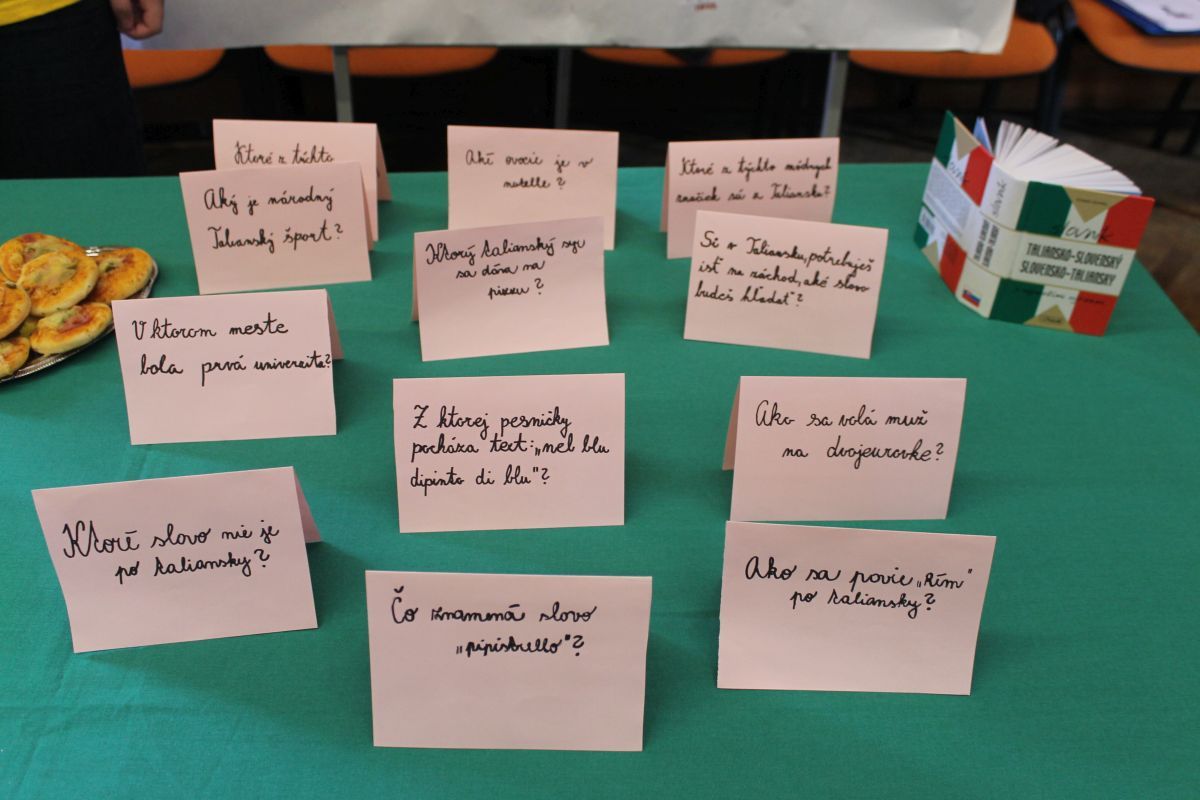 Ktoré z týchto
Aké ovocie je v
nutelle?
Ktoré z týchto módnych
značiek sú z Talianska?
Aký je národný
Taliansky šport?
Ktorý taliansky syr
sa dáva na
pizzu?
Si v Taliansku, potrebuješ
ísť na záchod, aké slovo
budeš hľadať?
TALIANSKO-SLOVENSKÝ
SLOVENSKO-TALIANSKY
V ktorom meste
bola prvá univerzita?
Z ktorej pesničky
pocháza text: „nel blu
dipinto di blu"?
Ako sa volá muž
na dvojeurovke?
Ktoré slovo nie je
po taliansky?
Čo znamená slovo
„pipistrello"?
Ako sa povie „Rím"
po taliansky?